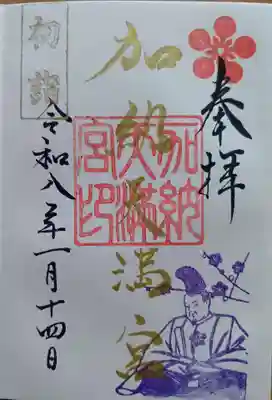 奉拝
加納天満宮
加納天満宮印
令和八年一月十四日
初詣